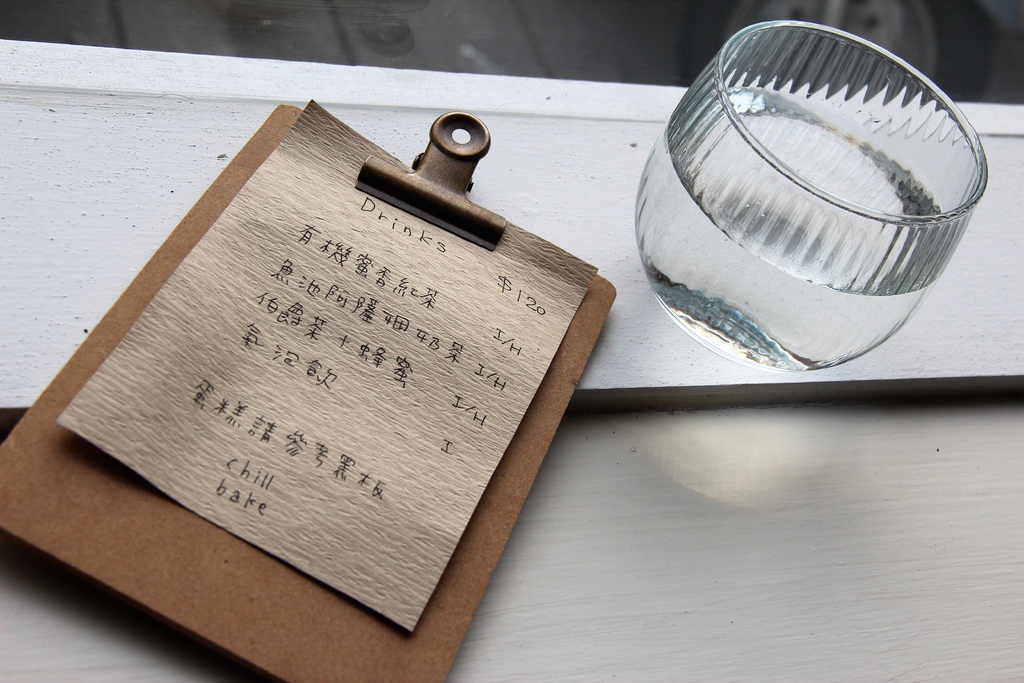 Drinks $120
有機蜜香紅茶 I/H
魚池阿薩姆奶茶 I/H
伯爵茶+蜂蜜 I/H
氣泡飲 I
蛋糕請參考黑板
chill
bake